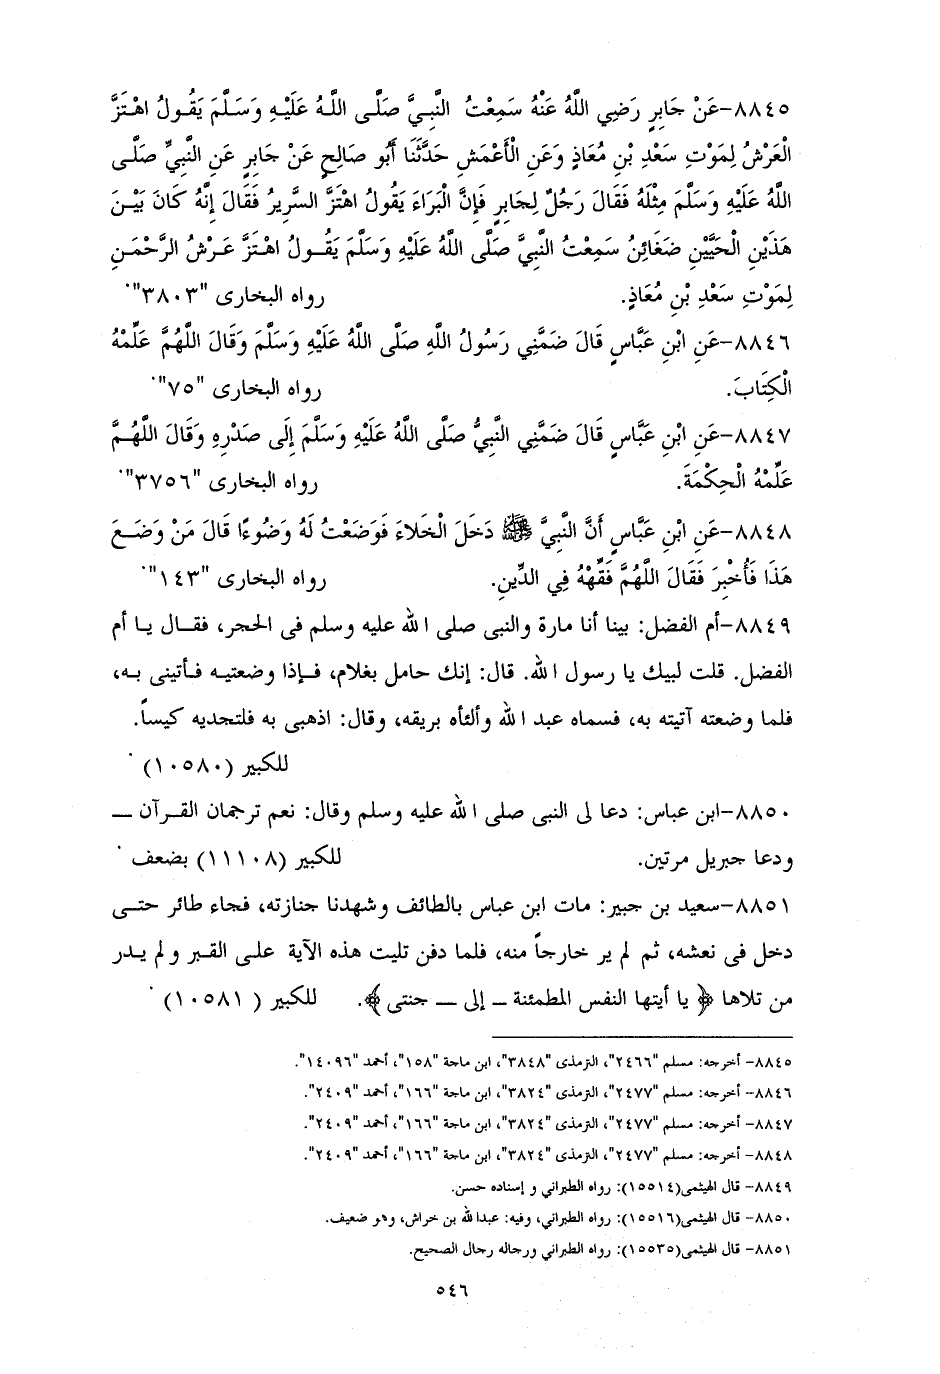 ٨٨٤٥-عَنْ جَابِرٍ رَضِيَ اللَّهُ عَنْهُ سَمِعْتُ النَّبِيَّ صَلَّى اللَّهُ عَلَيْهِ وَسَلَّمَ يَقُولُ اهْتَزَّ
الْعَرْشُ لِمَوْتِ سَعْدِ بْنِ مُعَاذٍ وَعَنِ الْأَعْمَشِ حَدَّثَنَا أَبُو صَالِحٍ عَنْ جَابِرٍ عَنِ النَّبِيِّ صَلَّى
اللَّهُ عَلَيْهِ وَسَلَّمَ مِثْلَهُ فَقَالَ رَجُلٌ لِجَابِرٍ فَإِنَّ الْبَرَاءَ يَقُولُ اهْتَزَّ السَّرِيرُ فَقَالَ إِنَّهُ كَانَ بَيْنَ
هَذَيْنِ الْحَيَّيْنِ ضَغَائِنُ سَمِعْتُ النَّبِيَّ صَلَّى اللَّهُ عَلَيْهِ وَسَلَّمَ يَقُولُ اهْتَزَّ عَرْشُ الرَّحْمَنِ
لِمَوْتِ سَعْدِ بْنِ مُعَاذٍ. رواه البخارى "٣٨٠٣".
٨٨٤٦-عَنِ ابْنِ عَبَّاسٍ قَالَ ضَمَّنِي رَسُولُ اللَّهِ صَلَّى اللَّهُ عَلَيْهِ وَسَلَّمَ وَقَالَ اللَّهُمَّ عَلِّمْهُ
الْكِتَابَ. رواه البخارى "٧٥".
٨٨٤٧-عَنِ ابْنِ عَبَّاسٍ قَالَ ضَمَّنِي النَّبِيُّ صَلَّى اللَّهُ عَلَيْهِ وَسَلَّمَ إِلَى صَدْرِهِ وَقَالَ اللَّهُمَّ
عَلِّمْهُ الْحِكْمَةَ. رواه البخارى "٣٧٥٦".
٨٨٤٨-عَنِ ابْنِ عَبَّاسٍ أَنَّ النَّبِيَّ ﷺ دَخَلَ الْخَلَاءَ فَوَضَعْتُ لَهُ وَضُوءًا قَالَ مَنْ وَضَعَ
هَذَا فَأُخْبِرَ فَقَالَ اللَّهُمَّ فَقِّهْهُ فِي الدِّينِ. رواه البخارى "١٤٣".
٨٨٤٩-أم الفضل: بينا أنا مارة والنبى صلى الله عليه وسلم فى الحجر، فقال يا أم
الفضل. قلت لبيك يا رسول الله. قال: إنك حامل بغلام، فإذا وضعتيه فأتينى به،
فلما وضعته آتيته به، فسماه عبد الله وألثأه بريقه، وقال: اذهبى به فلتجديه كيساً.
للكبير (١٠٥٨٠)
٨٨٥٠-ابن عباس: دعا لى النبى صلى الله عليه وسلم وقال: نعم ترجمان القرآن ــ
ودعا جبريل مرتين. للكبير (١١١٠٨) بضعف
٨٨٥١-سعيد بن جبير: مات ابن عباس بالطائف وشهدنا جنازته، فجاء طائر حتى
دخل فى نعشه، ثم لم ير خارجاً منه، فلما دفن تليت هذه الآية على القبر ولم يدر
من تلاها ﴿ يا أيتها النفس المطمئنة ــ إلى ــ جنتى ﴾. للكبير ( ١٠٥٨١)
٨٨٤٥- أخرجه: مسلم "٢٤٦٦"، الترمذى "٣٨٤٨"، ابن ماجة "١٥٨"، أحمد "١٤٠٩٦".
٨٨٤٦- أخرجه: مسلم "٢٤٧٧"، الترمذى "٣٨٢٤"، ابن ماجة "١٦٦"، أحمد "٢٤٠٩".
٨٨٤٧- أخرجه: مسلم "٢٤٧٧"، الترمذى "٣٨٢٤"، ابن ماجة "١٦٦"، أحمد "٢٤٠٩".
٨٨٤٨- أخرجه: مسلم "٢٤٧٧"، الترمذى "٣٨٢٤"، ابن ماجة "١٦٦"، أحمد "٢٤٠٩".
٨٨٤٩- قال الهيثمى(١٥٥١٤): رواه الطبراني و إسناده حسن.
٨٨٥٠- قال الهيثمى(١٥٥١٦): رواه الطبراني، وفيه: عبدالله بن خراش، وهو ضعيف.
٨٨٥١- قال الهيثمى(١٥٥٣٥): رواه الطبراني ورجاله رجال الصحيح.
٥٤٦